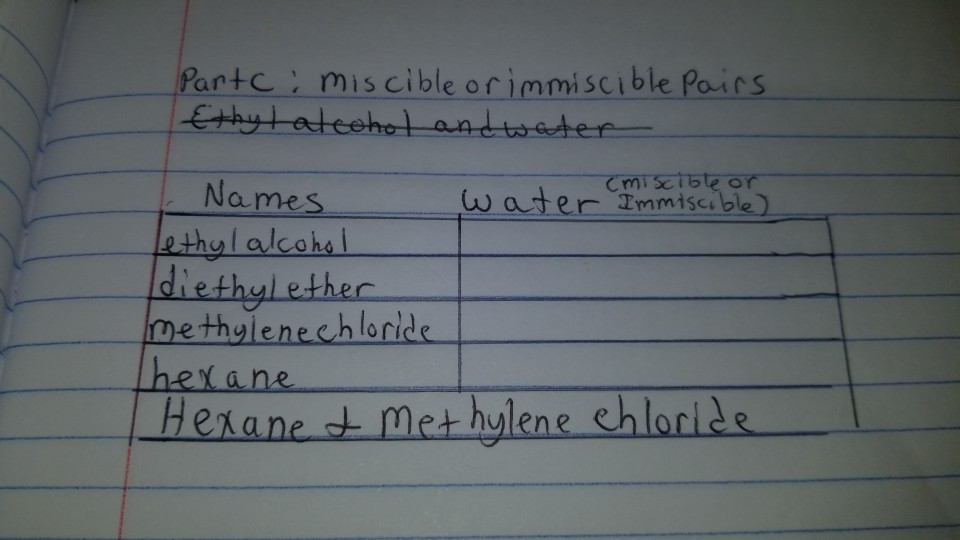 Part C : miscible or immiscible Pairs
Ethyl alcohol and water
Names water (miscible or Immiscible)
ethyl alcohol
diethyl ether
methylene chloride
hexane
Hexane & Methylene chloride